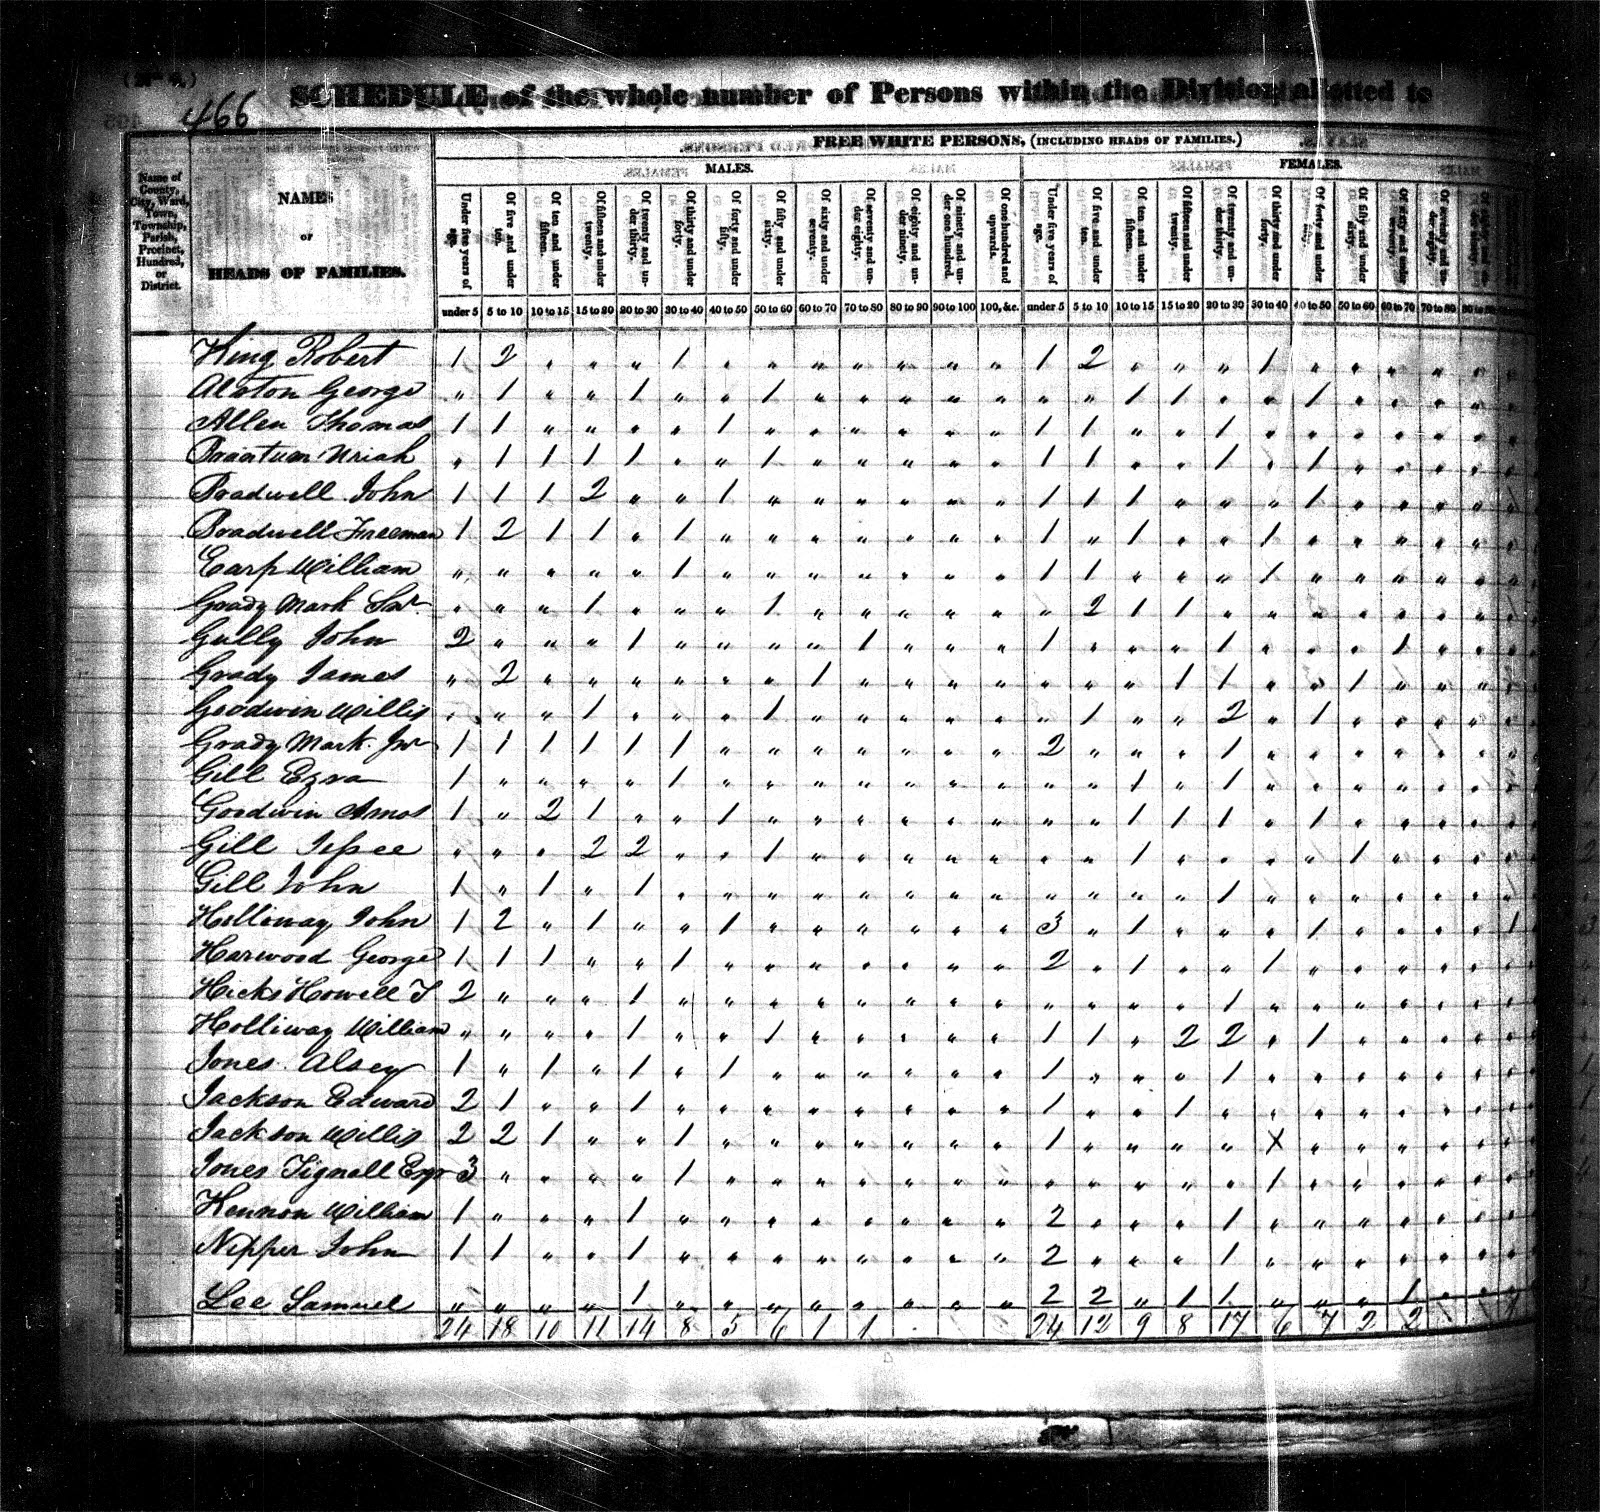 466
SCHEDULE of the whole number of Persons within the Division allotted to
FREE WHITE PERSONS, (INCLUDING HEADS OF FAMILIES.)
MALES. FEMALES.
Name of County, City, Ward, Town, Township, Parish, Precinct, Hundred, or District.
NAMES
or
HEADS OF FAMILIES.
Under five years of age. Of five and under ten. Of ten and under fifteen. Of fifteen and under twenty. Of twenty and under thirty. Of thirty and under forty. Of forty and under fifty. Of fifty and under sixty. Of sixty and under seventy. Of seventy and under eighty. Of eighty and under ninety. Of ninety and under one hundred. Of one hundred and upwards. Under five years of age. Of five and under ten. Of ten and under fifteen. Of fifteen and under twenty. Of twenty and under thirty. Of thirty and under forty. Of forty and under fifty. Of fifty and under sixty. Of sixty and under seventy. Of seventy and under eighty.
under 5 5 to 10 10 to 15 15 to 20 20 to 30 30 to 40 40 to 50 50 to 60 60 to 70 70 to 80 80 to 90 90 to 100 100, &c. under 5 5 to 10 10 to 15 15 to 20 20 to 30 30 to 40 40 to 50 50 to 60 60 to 70 70 to 80 80 to 90
King Robert 1 2 " " " 1 " " " " " " " 1 2 " " " 1 " " " " "
Alston George " 1 " " 1 " " 1 " " " " " " " 1 1 " " 1 " " " "
Allen Thomas 1 1 " " " " 1 " " " " " " 1 1 " " 1 " " " " " "
Brantum Uriah " 1 1 1 1 " " 1 " " " " " 1 1 " " 1 " 1 " " " "
Bradwell John 1 1 1 2 " " 1 " " " " " " 1 1 1 " " " 1 " " " "
Bradwell Freeman 1 2 1 1 " 1 " " " " " " " 1 " 1 " " 1 " " " " "
Earp William " " " " " 1 " " " " " " " 1 1 " " " 1 " " " " "
Grady Mark Snr. " " " 1 " " " 1 " " " " " " 2 1 1 " " " " " " "
Gully John 2 " " " 1 " " " " 1 " " " 1 " " " 1 " " " 1 " "
Grady James " 2 " " " " " " 1 " " " " " " " 1 1 " " 1 " " "
Goodwin Willis " " " 1 " " " 1 " " " " " " 1 " " 2 " 1 " " " "
Grady Mark Jnr 1 1 1 1 1 1 " " " " " " " 2 " " " 1 " " " " " "
Gill Ezra 1 " " " " 1 " " " " " " " " " 1 " 1 " " " " " "
Goodwin Amos 1 " 2 1 " " 1 " " " " " " " " 1 1 1 " 1 " " " "
Gill Jessee " " " 2 2 " " 1 " " " " " " " 1 " " " " 1 " " "
Gill John 1 " 1 " 1 " " " " " " " " " " " " 1 " " " " " "
Holliway John 1 2 " 1 " " 1 " " " " " " 3 " 1 " " " 1 " " " "
Harwood George 1 1 1 " " 1 " " " " " " " 2 " 1 " " 1 " " " " "
Hicks Howell T 2 " " " 1 " " " " " " " " " " " " 1 " " " " " "
Holliway William " " " " 1 " " 1 " " " " " 1 1 " 2 2 " 1 " " " "
Jones Alsey 1 " 1 " 1 " 1 " " " " " " 1 " " " 1 " " " " " "
Jackson Edward 2 1 " " 1 " " " " " " " " 1 " " 1 " " " " " " "
Jackson Willis 2 2 1 " " 1 " " " " " " " 1 " " " " X " " " " "
Jones Tignall Esqr 3 " " " " 1 " " " " " " " " " " " " 1 " " " " "
Kennon William 1 " " " 1 " " " " " " " " 2 " " " 1 " " " " " "
Nipper John 1 1 " " 1 " " " " " " " " 2 " " " 1 " " " " " "
Lee Samuel " " " " 1 " " " " " " " " 2 2 " 1 1 " " " 1 " "
24 18 10 11 14 8 5 6 1 1 24 12 9 8 17 6 7 2 2